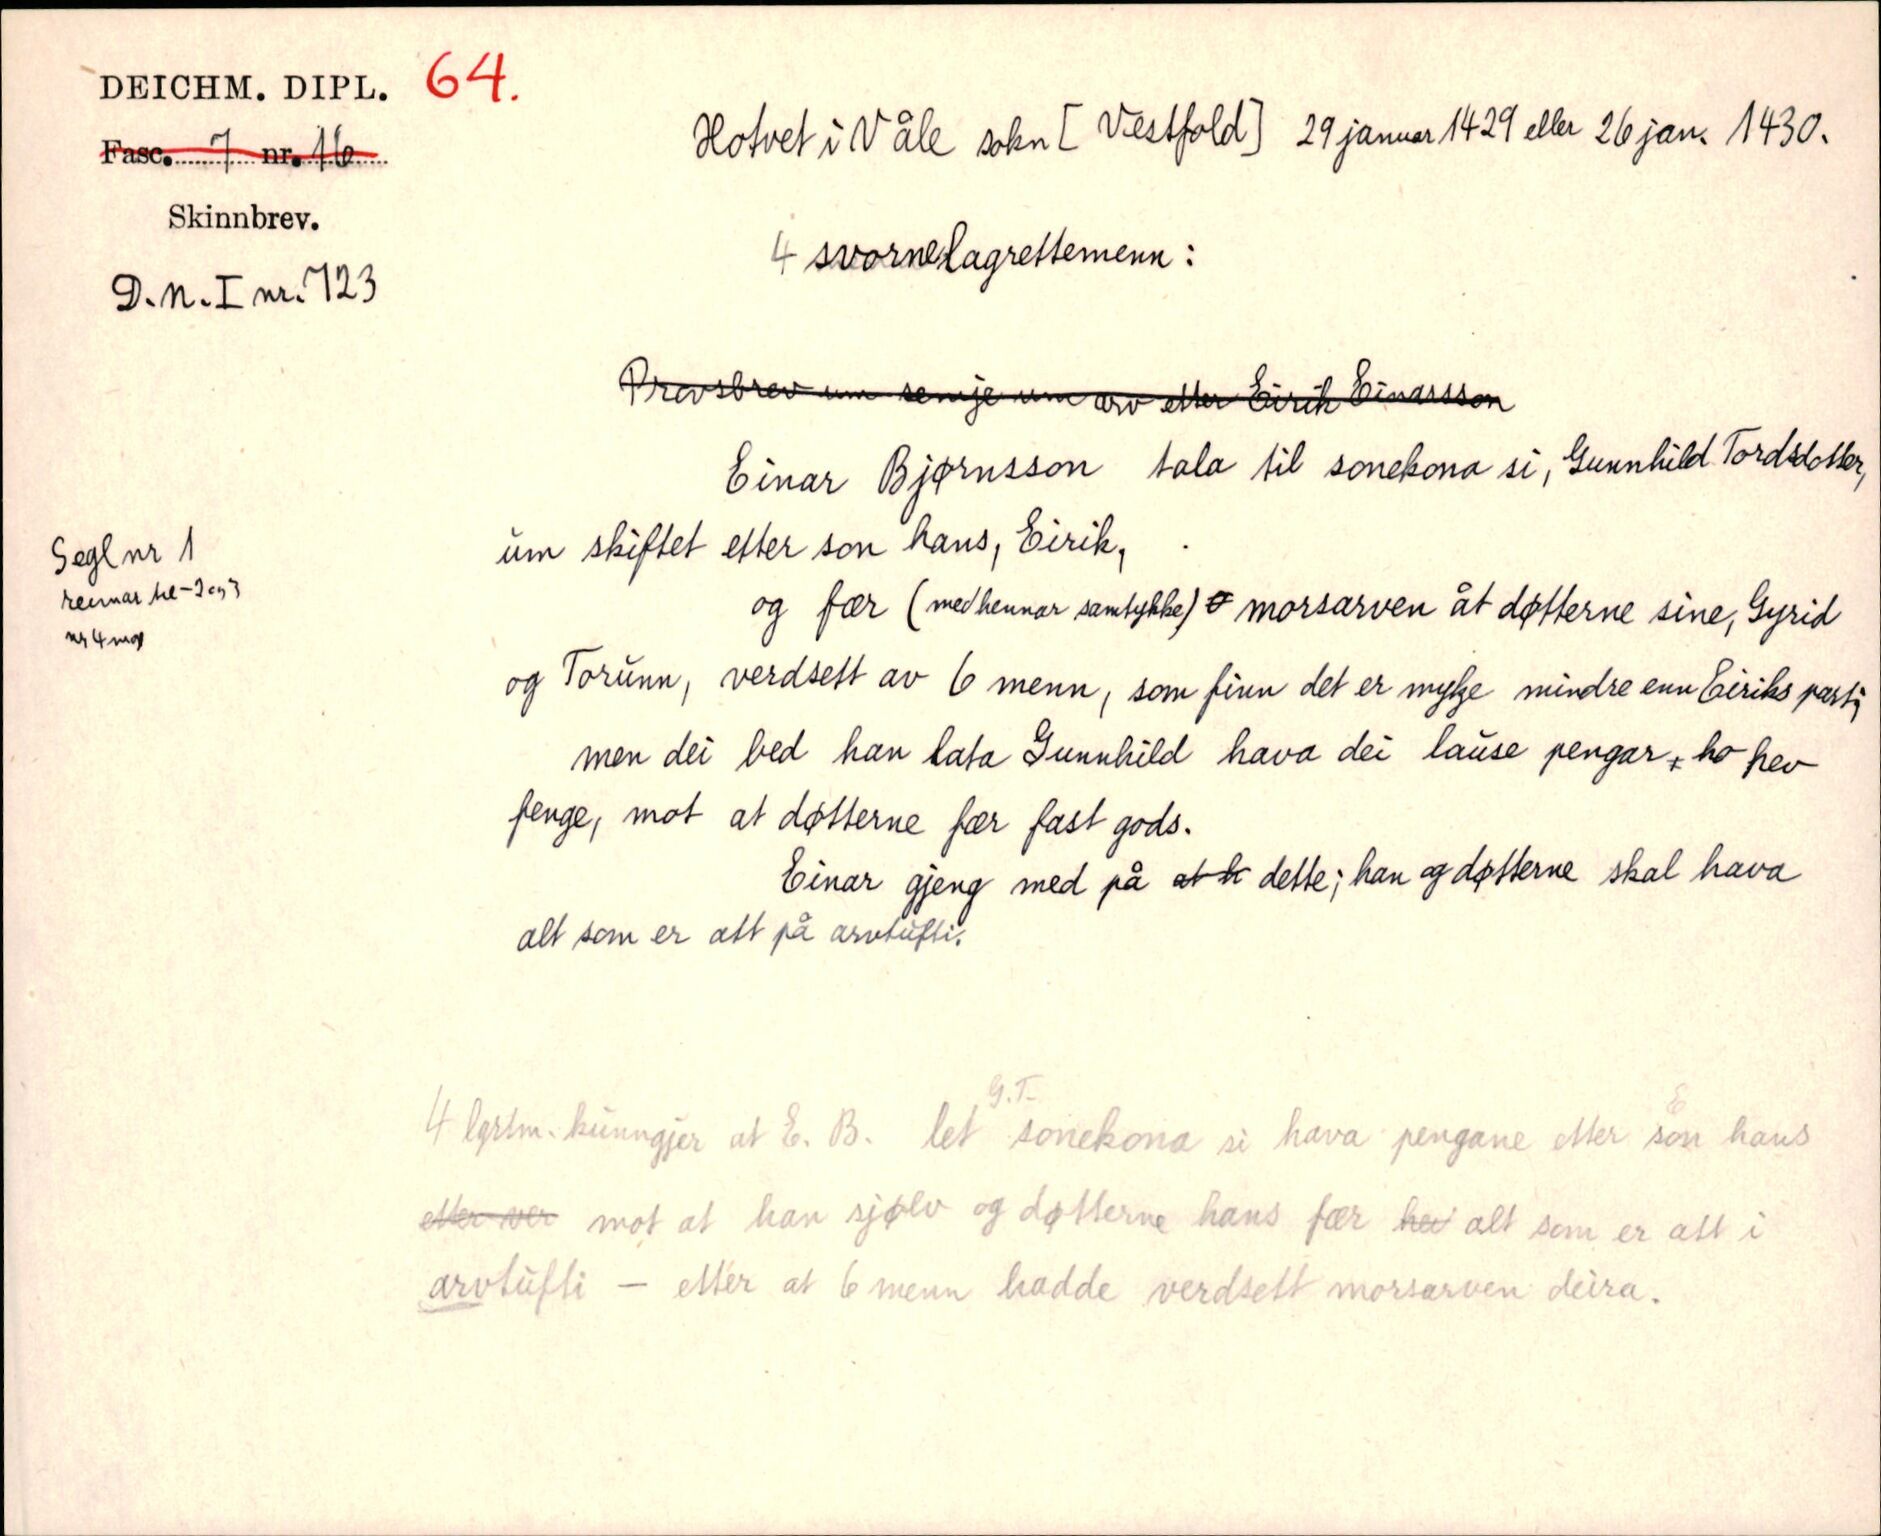 DEICHM. DIPL. 64.
Fasc. 7 nr. 16
Skinnbrev.
D.N. I nr. 723
Hotvet i Våle sokn [Vestfold] 29 januar 1429 eller 26 jan. 1430.
4 svorne lagrettemenn:
Provsbrev um semje um arv etter Eirik Einarsson
Einar Bjørnsson tala til sonekona si, Gunnhild Tordsdotter,
um skiftet etter son hans, Eirik,
Segl nr 1
reimar til 2 og 3
nr 4 mgl
og fær (med hennar samtykke) morsarven åt døtterne sine, Gyrid
og Torunn, verdsett av 6 menn, som finn det er mykje mindre enn Eiriks part;
men dei bed han lata Gunnhild hava dei lause pengar, ho hev
fenge, mot at døtterne fær fast gods.
Einar gjeng med på at h dette; han og døtterne skal hava
alt som er att på arvtufti.
4 lgrtm. kunngjer at E. B. let G.T. sonekona si hava pengane etter son E hans
etter ver mot at han sjølv og døtterne hans fær hei alt som er att i
arvtufti — etter at 6 menn hadde verdsett morsarven deira.